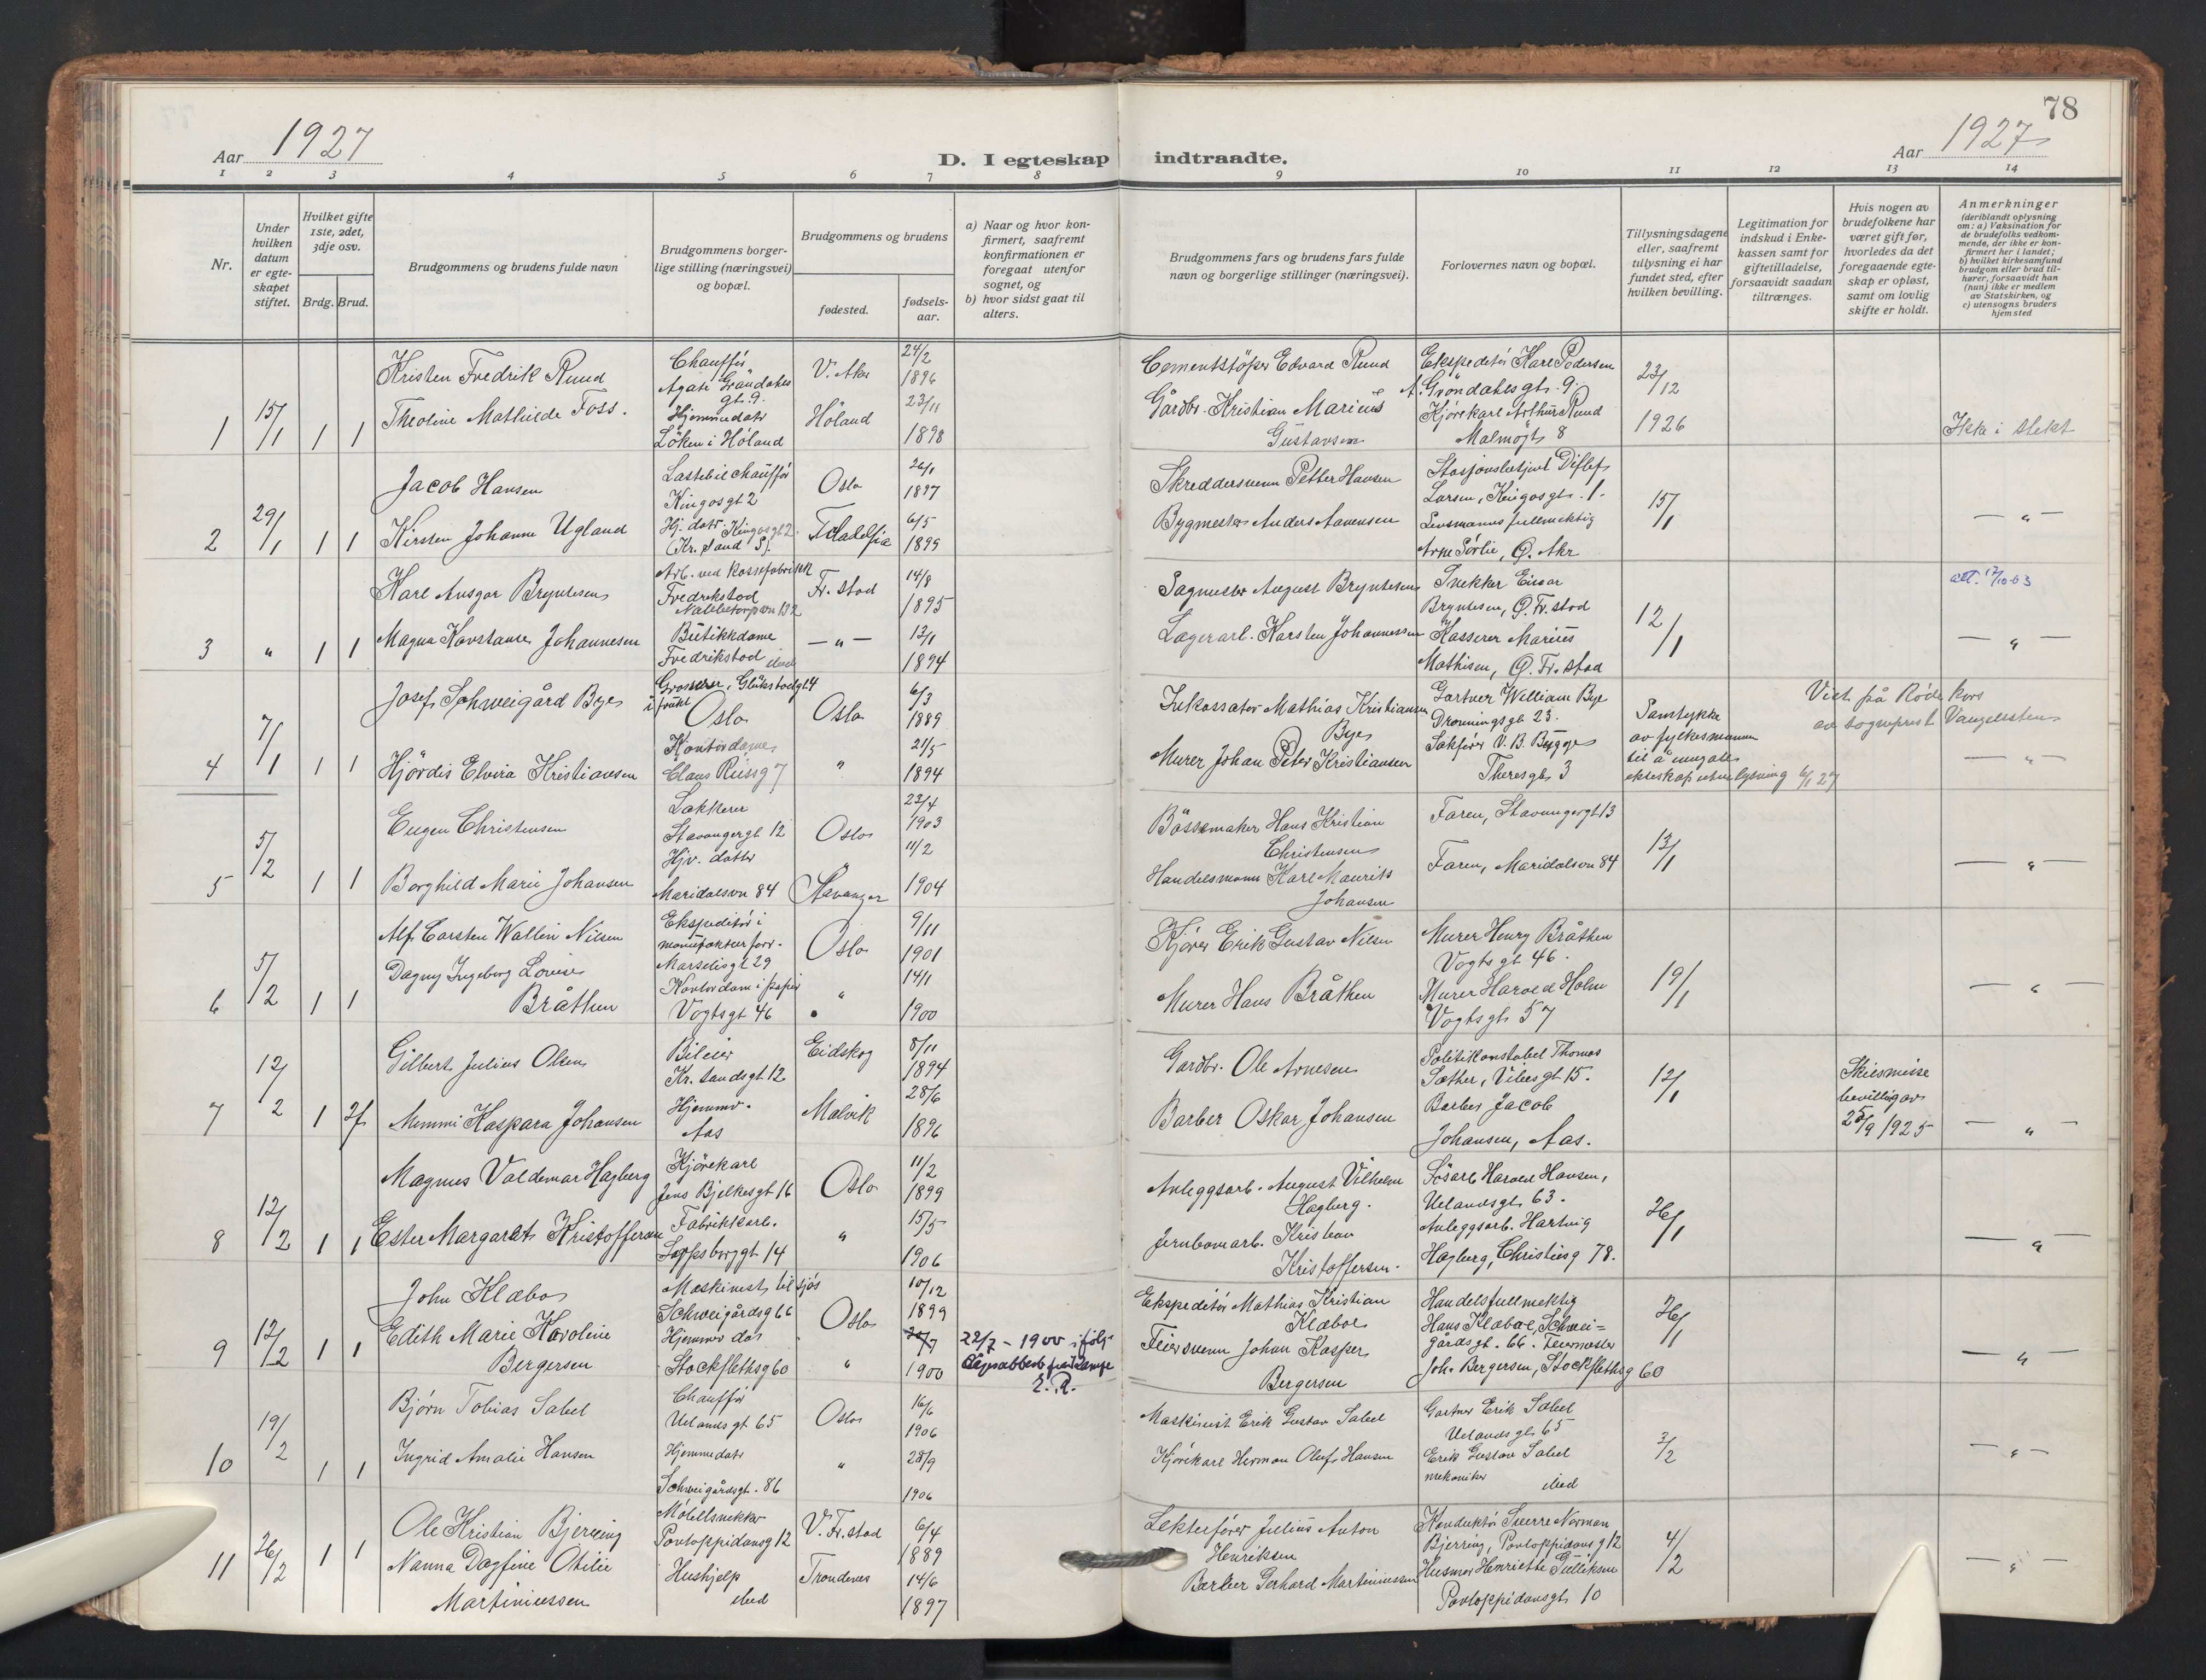 78
Aar 1927
D. I egteskap indtraadte.
Aar 1927
1 2 3 4 5 6 7 8 9 10 11 12 13 14
Nr.
Under hvilken datum er egteskapet stiftet.
Hvilket gifte 1ste, 2det, 3dje osv.
Brdg. Brud.
Brudgommens og brudens fulde navn
Brudgommens borgerlige stilling (næringsvei) og bopæl.
Brudgommens og brudens
fødested.
fødselsaar.
a) Naar og hvor konfirmert, saafremt konfirmationen er foregaat utenfor sognet, og
b) hvor sidst gaat til alters.
Brudgommens fars og brudens fars fulde navn og borgerlige stillinger (næringsvei).
Forlovernes navn og bopæl.
Tillysningsdagene eller, saafremt tillysning ei har fundet sted, efter hvilken bevilling.
Legitimation for indskud i Enkekassen samt for giftetilladelse, forsaavidt saadan tiltrænges.
Hvis nogen av brudefolkene har været gift før, hvorledes da det foregaaende egteskap er opløst, samt om lovlig skifte er holdt.
Anmerkninger
(deriblandt oplysning om: a) Vaksination for de brudefolks vedkommende, der ikke er konfirmert her i landet; b) hvilket kirkesamfund brudgom eller brud tilhører, forsaavidt han (hun) ikke er medlem av Statskirken, og c) utensogns bruders hjemsted
1 15/1 1 1
Kristen Fredrik Ruud
Chauffør
Agate Grøndahls gt. 9.
V. Aker
24/2 1896
Cementstöper Edvard Ruud
Ekspeditör Karl Pedersen
A. Gröndahls gt. 9.
23/12 1926
Theoline Mathilde Foss.
Hjemmedatr
Löken i Höland
Höland
23/11 1898
Gårdbr. Kristian Marius Gustavsen
Kjörekarl Arthur Ruud
Malmögt 8
Ikke i slekt
2 29/1 1 1
Jacob Hansen
Lastebilchauffør
Kingosgt 2
Oslo
26/1 1897
Skreddersvenn Petter Hansen
Stasjonsbetjent Ditlef Larsen, Kingosgt. 1.
15/1
Kirsten Johanne Ugland
Hj. datr. Kingosgt 2.
(Kr. sand S).
6/5 1899
Bygmester Anders Aanensen
Lensmannsfullmektig
Arne Sörlie, Ø. Aker
— " —
3 " 1 1
Karl Ansgar Bryntesen
Arb. ved kassefabrikk
Fredrikstad
Fr. stad
14/8 1895
Sagmester August Bryntesen
Snekker Einar Bryntesen, Ø. Fr. stad
12/1
Magna Konstanse Johannesen
Butikkdame
Fredrikstad ibid
— " —
13/1 1894
Lagerarb. Karsten Johannessen
Kasserer Marius Mathisen, Ø. Fr. stad
— " —
4 7/1 1 1
Josef Schweigård Bye
Grosserer, Glükstadgt 4
i frukt
Oslo
Oslo
6/3 1889
Inkassator Mathias Kristiansen Bye
Gartner William Bye
Dronningsgt 23.
Samtykke av fylkesmannen til å inngå ekteskap uten lysning 6/1 27
Viet på Röde Kors av sogneprest Vangelsten
Hjördis Elvira Kristiansen
Kontordame
Claus Riisg 7
"
21/5 1894
Murer Johan Peter Kristiansen
Sakförer V. B. Bygge
Theresgt 3
— " —
5 5/2 1 1
Eugen Christensen
Lakkerer
Stavangergt 12
Oslo
23/4 1903
Bössemaker Hans Kristian Christensen
Faren, Stavangergt 13
13/1
Borghild Marie Johansen
Hjv. datter
Maridalsvn 84
Stavanger
11/2 1904
Handelsmann Karl Maurits Johansen
Faren, Maridalsvn 84
— " —
6 5/2 1 1
Alf Carsten Wallin Nilsen
Ekspeditör i manufakturforr.
Marselisgt 29
Oslo
9/11 1901
Kjörer Erik Gustav Nilsen
Murer Henry Bråthen
Vogtsgt 46.
19/1
Dagny Ingeborg Lovise Bråthen
Kontordam i papir
Vogtsgt 46
"
14/1 1900
Murer Hans Bråthen
Murer Harald Holm
Vogtsgt 57
— " —
7 12/2 1 2f
Gilbert Julius Olsen
Bileier
Kr. sandsgt 12
Eidskog
8/11 1894
Gardbr. Ole Arnesen
Politikonstabel Thomas Sæther, Vibesgt 15.
12/1
Skilsmisse bevillig av 25/9 1925
Mimmi Kaspara Johansen
Hjemmv.
Aas
Malvik
28/6 1896
Barber Oskar Johansen
Barber Jacob Johansen, Aas.
— " —
8 12/2 1 1
Magnus Valdemar Hagberg
Kjörekarl
Jens Bjelkesgt 16
Oslo
11/2 1899
Anleggsarb. August Vilhelm Hagberg.
Harald Hansen, Uelandsgt 63.
26/1
Ester Margaret Kristoffersen
Fabrikkarb.
Sarpsborggt 14
"
15/5 1906
Jernbanearb. Kristian Kristoffersen.
Anleggsarb. Hartvig Hagberg, Christiesg 78.
— " —
9 12/2 1 1
John Klæboe
Maskinist til sjös
Schweigårdsg 66
Oslo
10/12 1899
Ekspeditör Mathias Kristian Klæboe
Handelsfullmektig
Hans Klæboe, Schweigårdsgt. 66.
26/1
Edith Marie Karoline Bergersen
Hjemmev datr
Stockflethsg 60
"
1900
22/7 - 1900 ifölg
E. R.
Feiersvenn Johan Kasper Bergersen
Feiermester
Joh. Bergersen, Stockflethsg 60
— " —
10 19/2 1 1
Bjørn Tobias Sabel
Chauffør
Uelandsgt 65
Oslo
16/6 1906
Maskinist Erik Gustav Sabel
Gartner Erik Sabel
Uelandsgt 65
3/2
Ingrid Amalie Hansen
Hjemmedatr
Schweigårdsgt. 86
"
28/9 1906
Kjörekarl Herman Oluf Hansen
Erik Gustav Sabel
mekaniker ibid
— " —
11 26/2 1 1
Ole Kristian Bjerring
Möbelsnekker
Pontoppidansg 12
V. Fr. stad
6/4 1889
Lekterförer Julius Anton Henriksen
Konduktör Sverre Norman Bjerring, Pontoppidansg 12
4/2
Nanna Dagfine Otilie Martiniussen
Hushjelp
ibid
Trondenes
14/6 1897
Barber Gerhard Martiniussen
Husmor Henriette Gulliksen
Pontoppidansgt 10
— " —